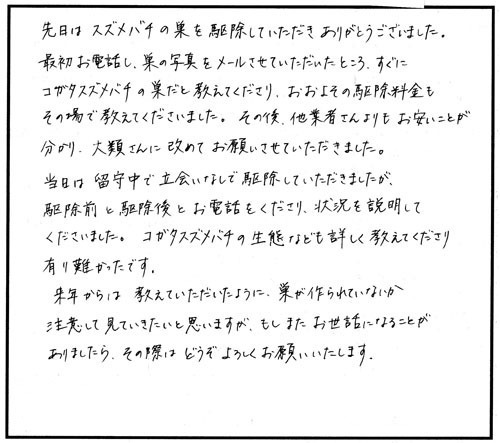 先日は スズメバチの巣を駆除していただき ありがとうございました。
最初お電話し、巣の写真をメールさせていただいたところ、すぐに
コガタスズメバチの巣だと教えてくださり、おおよその駆除料金も
その場で教えてくださいました。その後、他業者さんよりもお安いことが
分かり、大類さんに改めてお願いさせていただきました。
当日は留守中で立会いなしで駆除していただきましたが、
駆除前と駆除後とお電話をくださり、状況を説明して
くださいました。コガタスズメバチの生態なども詳しく教えてくださり
有り難かったです。
来年からは 教えていただいたように、巣が作られていないか
注意して見ていきたいと思いますが、もしまたお世話になることが
ありましたら、その際は どうぞよろしくお願いいたします.